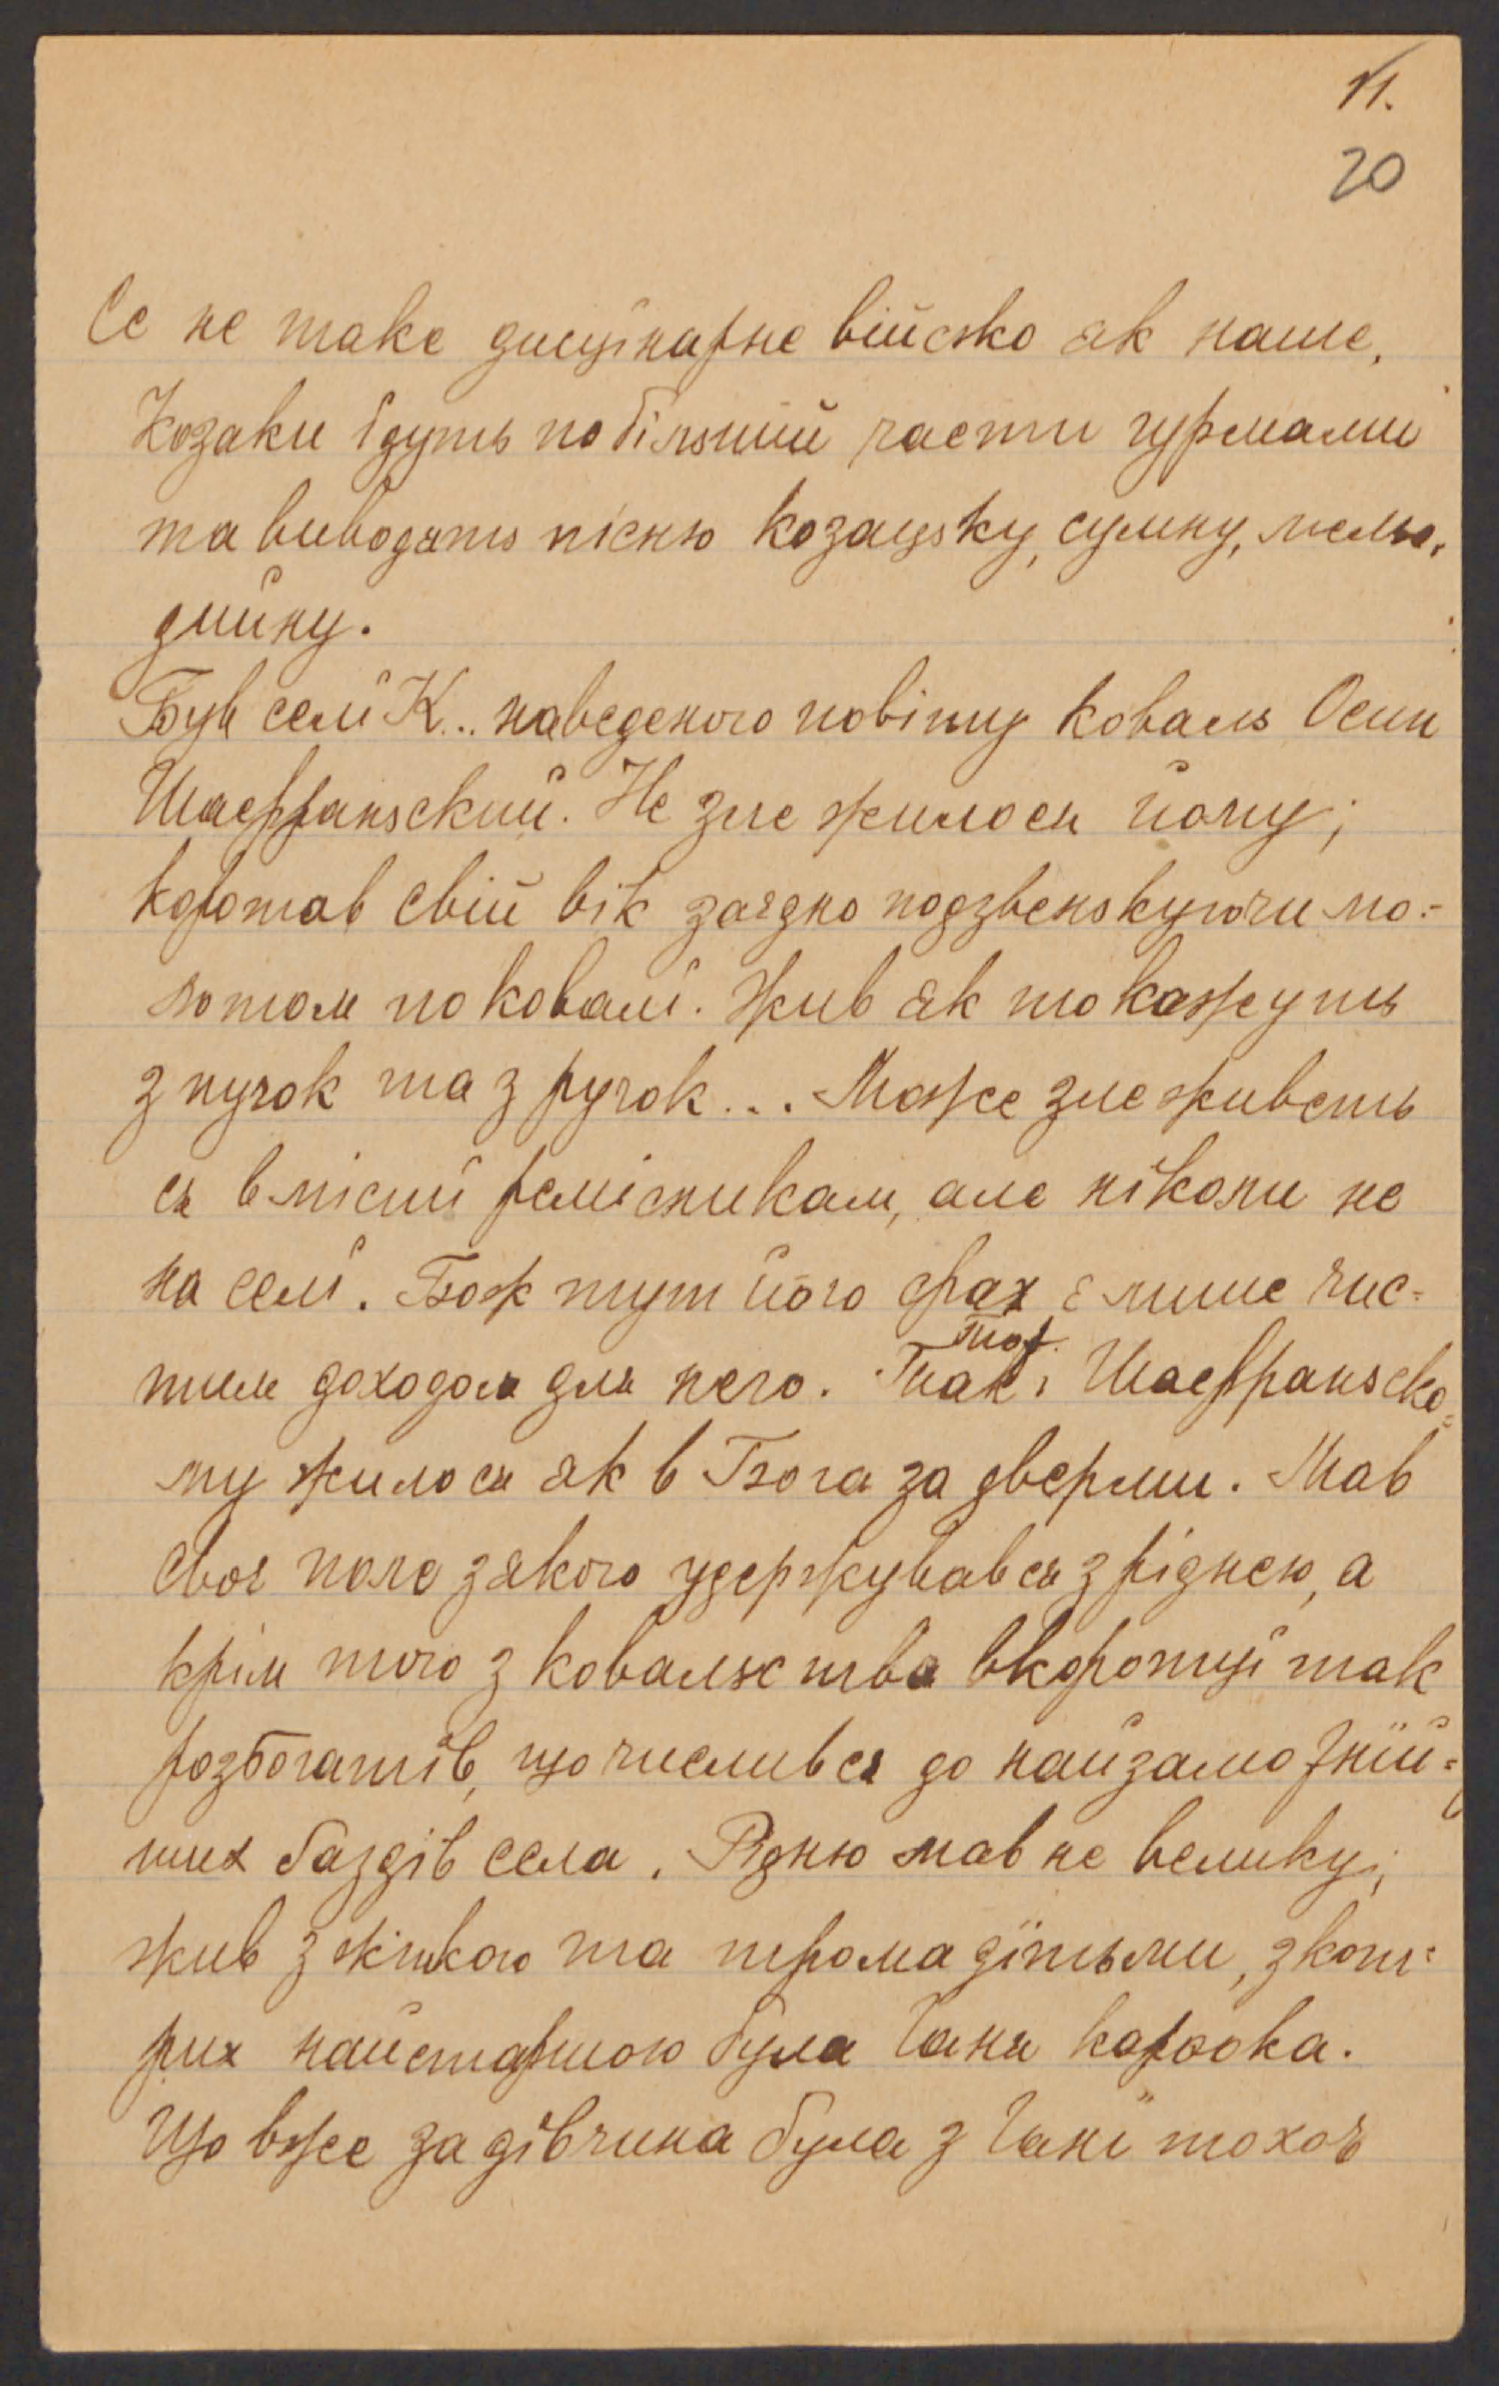 11.
20
Се не таке дисцінарне війско як наше,
Козаки їдуть по більший части гурмами
та виводять пісню козацьку, сумну, мельо-
дийну.
Був селї К... наведеного повіту коваль Осип
Шаффаньский. Не зле жилося йому;
коротав свій вік заєдно подзвенькуючи мо-
лотом по ковалї. Жив як то кажуть
з пучок та з ручок... Може зле живеть
ся в місцї ремісникам, але нїколи не
на селї. Бож тут його фах є лише чис-
тим доходом для него. Так і Шаффраньско-
Тож
му жилося як в Бога за дверми. Мав
своє поле з якого удержувався з ріднею, а
крім того з ковальства вкоротцї так
розбогатїв, що числився до найзаможнїй-
ших ґаздів села. Рідню мав не велику;
жив з жінкою та трома дїтьми, з кот-
рих найстаршою була Ганя кароока.
Що вже за дївчина була з Ганї то хоч